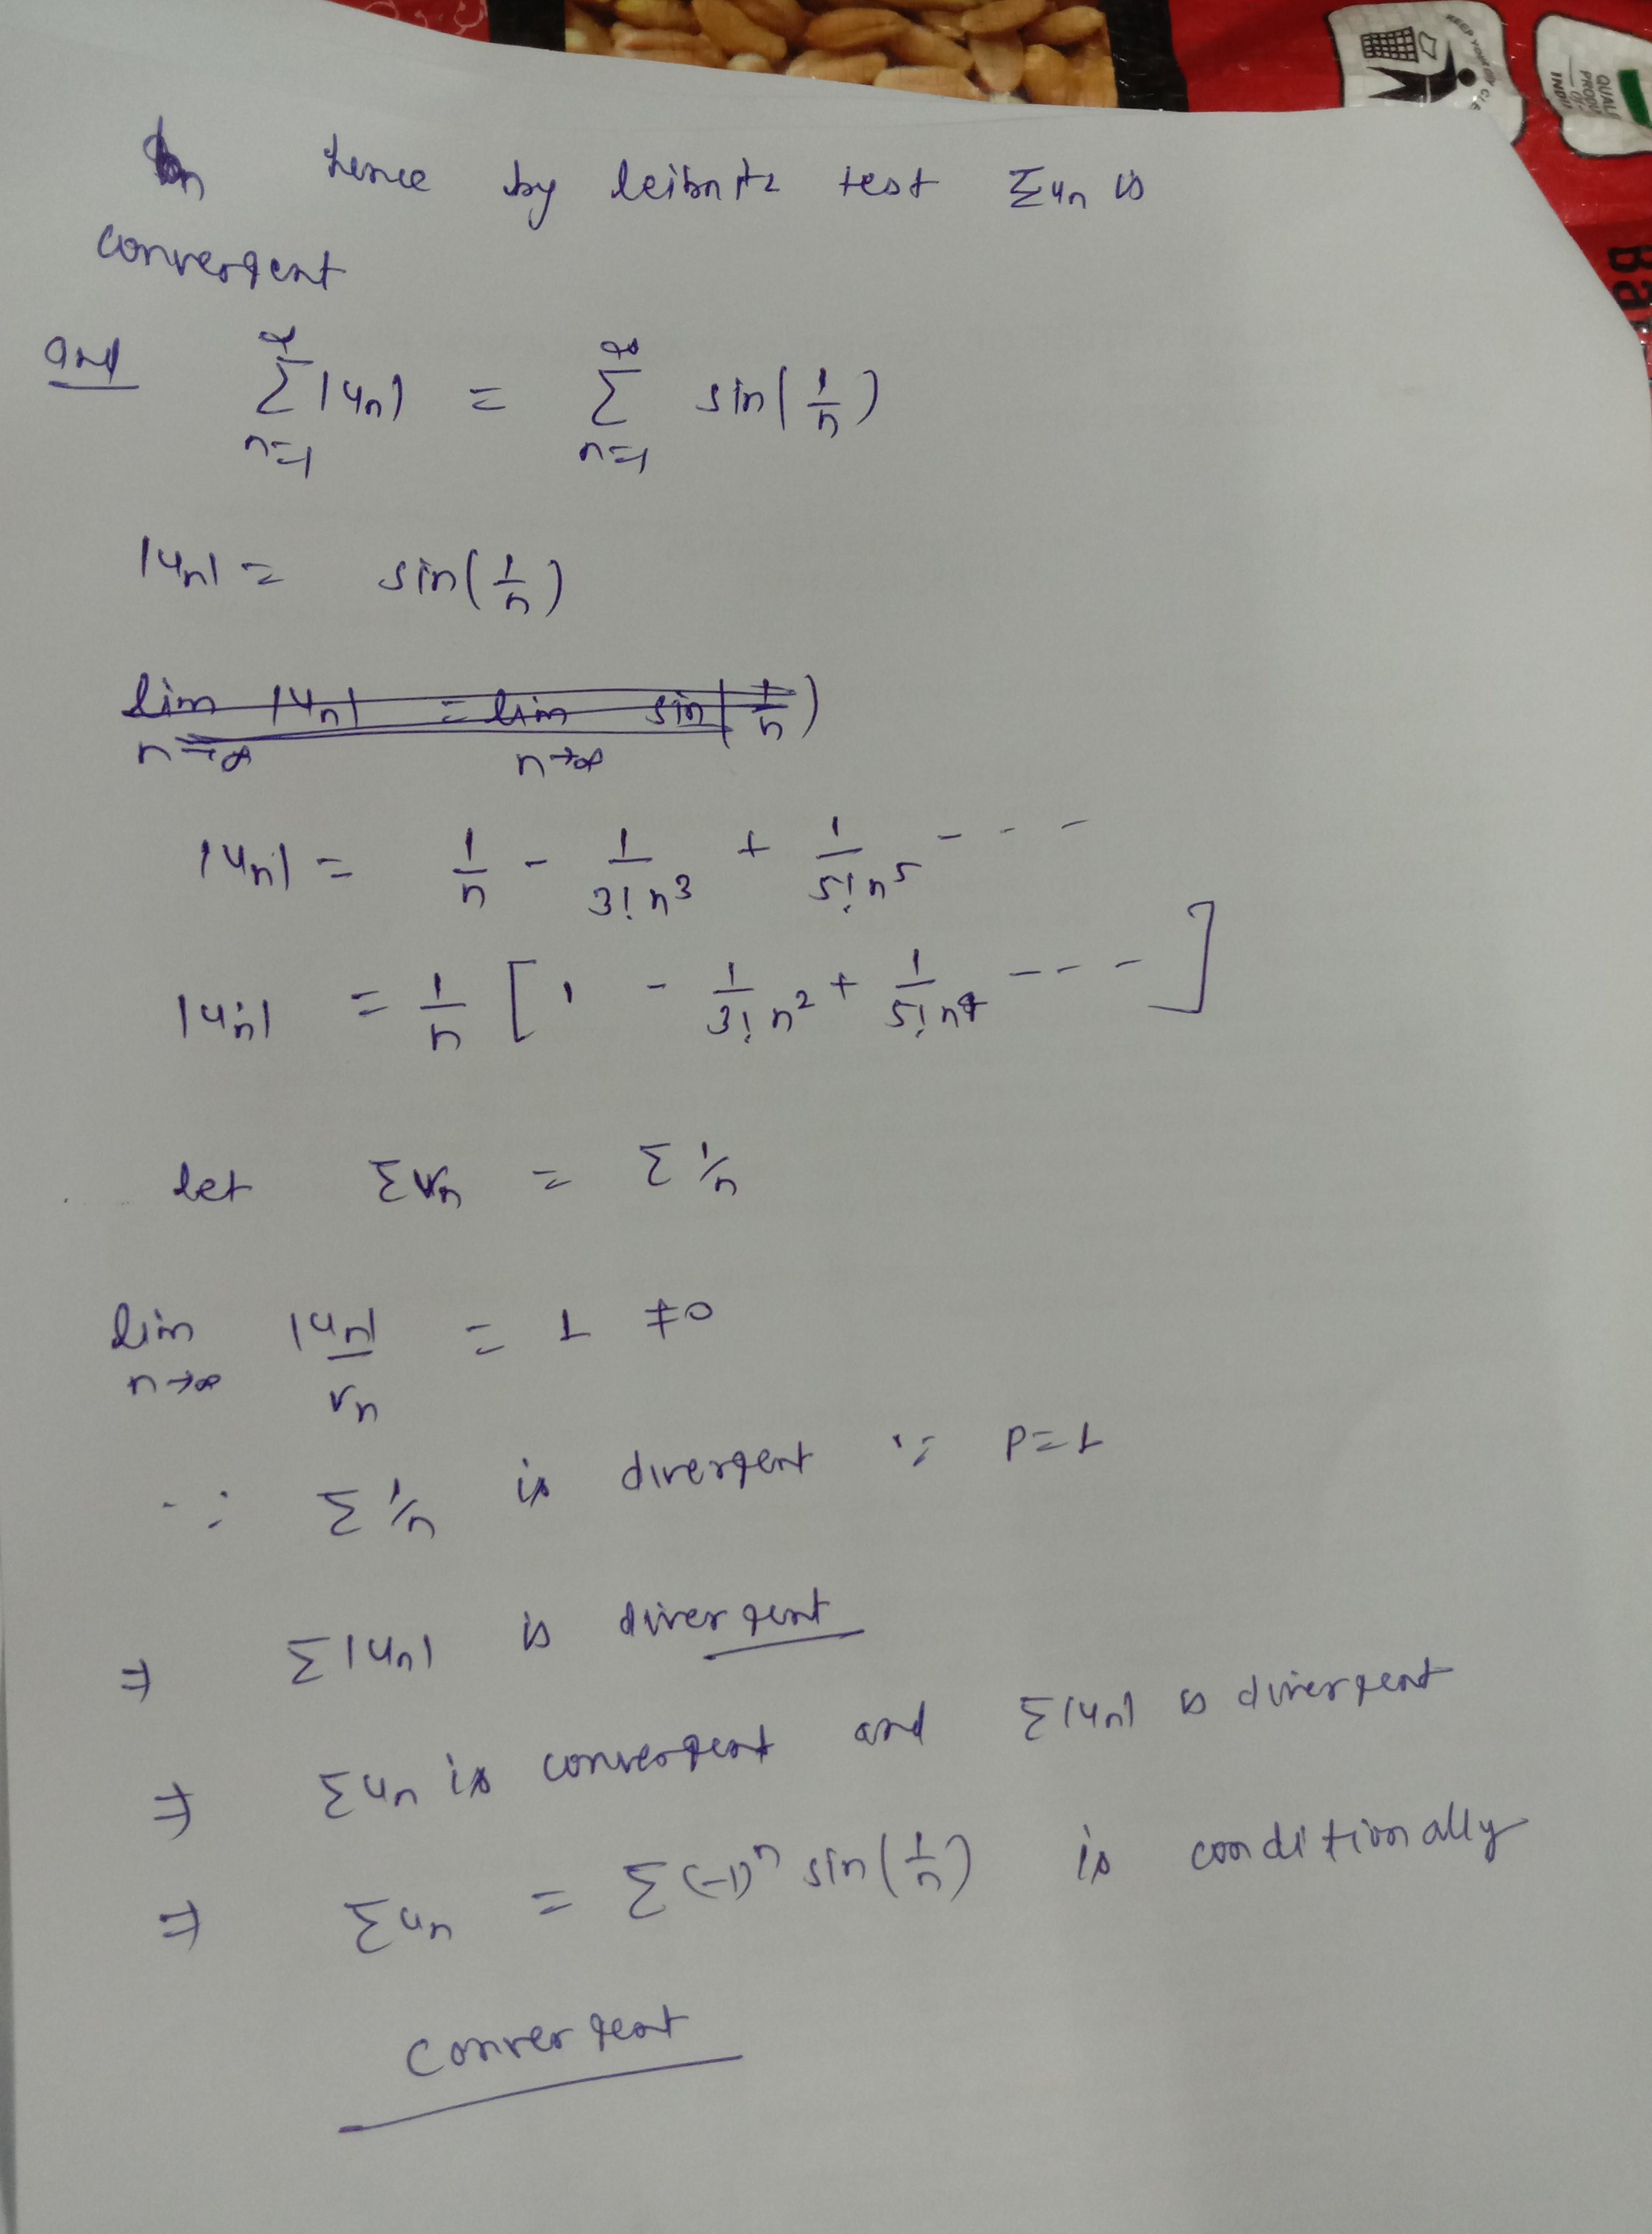 hence by leibnitz test Σun is
convergent
and ∞Σn=1 |un| = ∞Σn=1 sin(1/n)
|un| = sin(1/n)
lim n→∞ |un| = lim n→∞ sin(1/n)
|un| = 1/n - 1/3!n³ + 1/5!n⁵ - - -
|un| = 1/n [1 - 1/3!n² + 1/5!n⁴ - - - ]
let Σvn = Σ1/n
lim n→∞ |un|/vn = 1 ≠0
∵ Σ1/n is divergent ∵ P=1
⇒ Σ|un| is divergent
⇒ Σun is convergent and Σ|un| is divergent
⇒ Σun = Σ(-1)ⁿ sin(1/n) is conditionally
convergent
KEEP YOUR CI
QUALI
PRODU
OF
INDIA
Ba